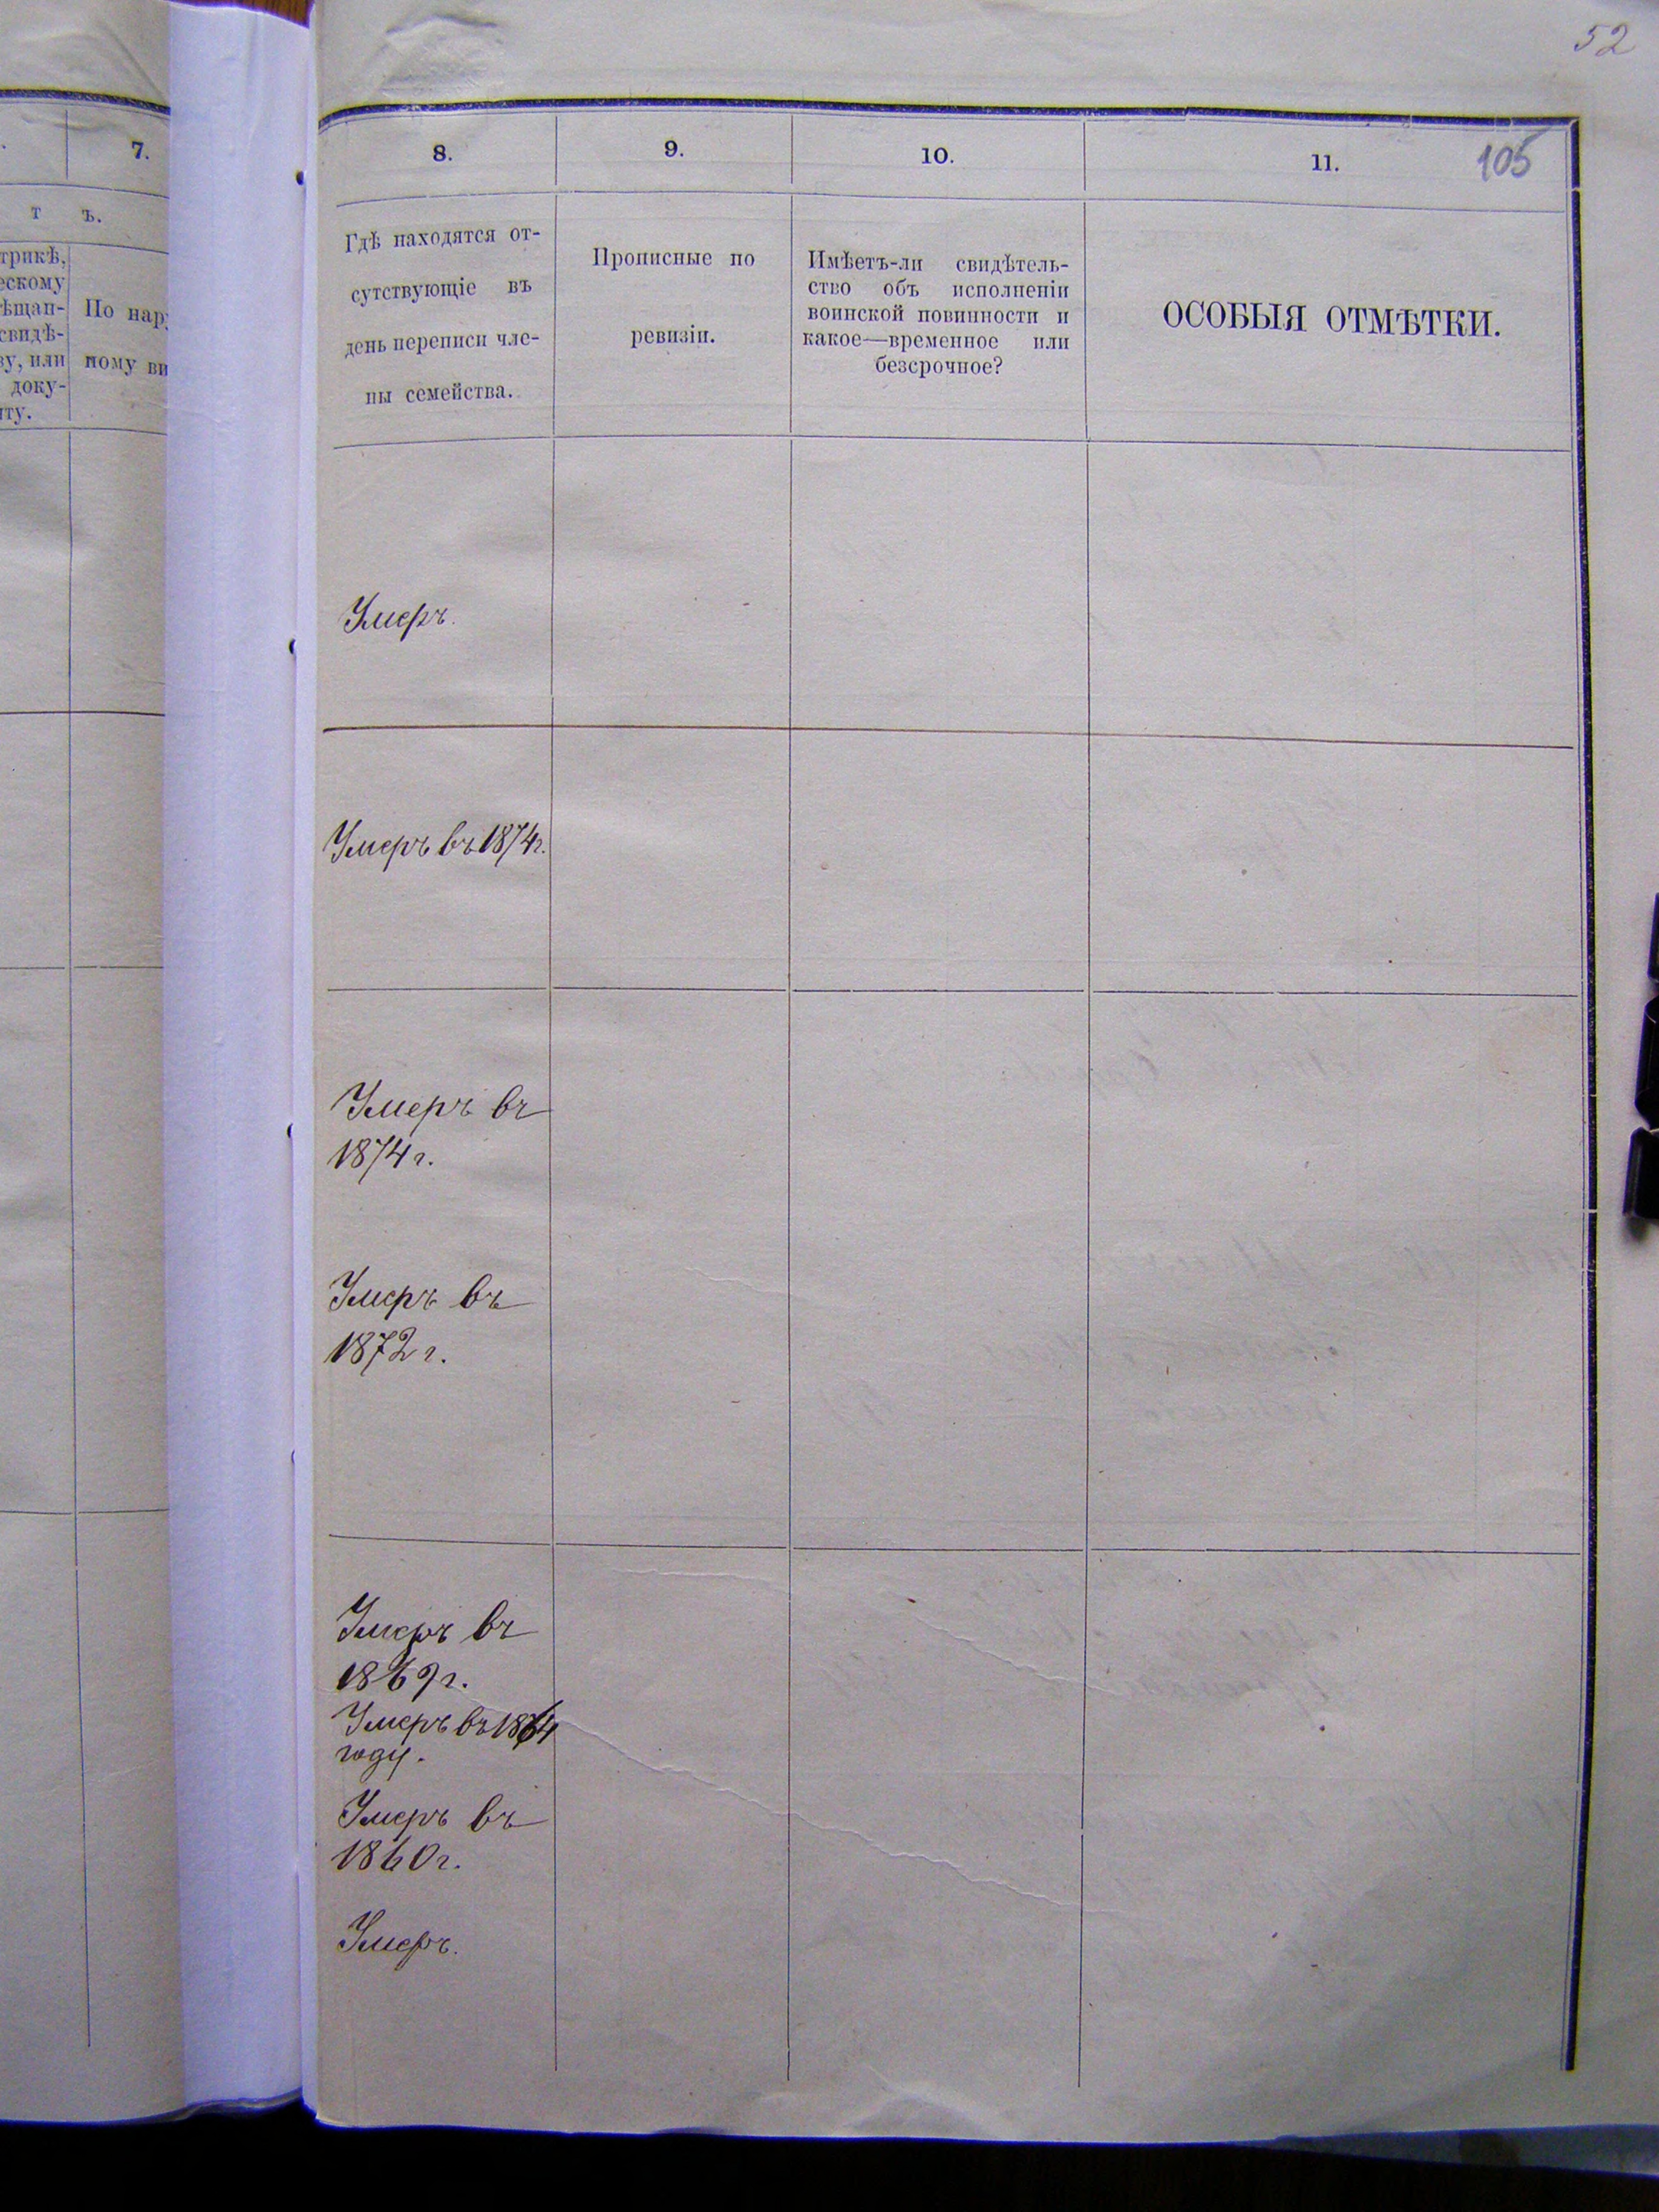 52
105
7.
т ъ.
трикѣ,
ескому
ѣщан-
свидѣ-
ву, или
доку-
нту.
По нару
ному ви
8.
9.
10.
11.
Гдѣ находятся от-
сутствующіе въ
день переписи чле-
ны семейства.
Прописные по
ревизіи.
Имѣетъ-ли свидѣтель-
ство объ исполненіи
воинской повинности и
какое—временное или
безсрочное?
ОСОБЫЯ ОТМѢТКИ.
Умеръ.
Умеръ въ 1874г.
Умеръ въ
1874 г.
Умеръ въ
1872 г.
Умеръ въ
1869 г.
Умеръ въ 1864
году.
Умеръ въ
1860 г.
Умеръ.